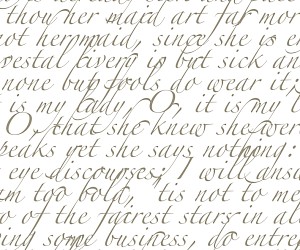 thou her maid art far mor
not her maid, since she is en
vestal livery is but sick an
none but fools do wear it;
t is my lady, O, it is my l
O, that she knew she wer
peaks yet she says nothing:
eye discourses; I will answ
am too bold, 'tis not to me
o of the fairest stars in al
ing some business, do entre